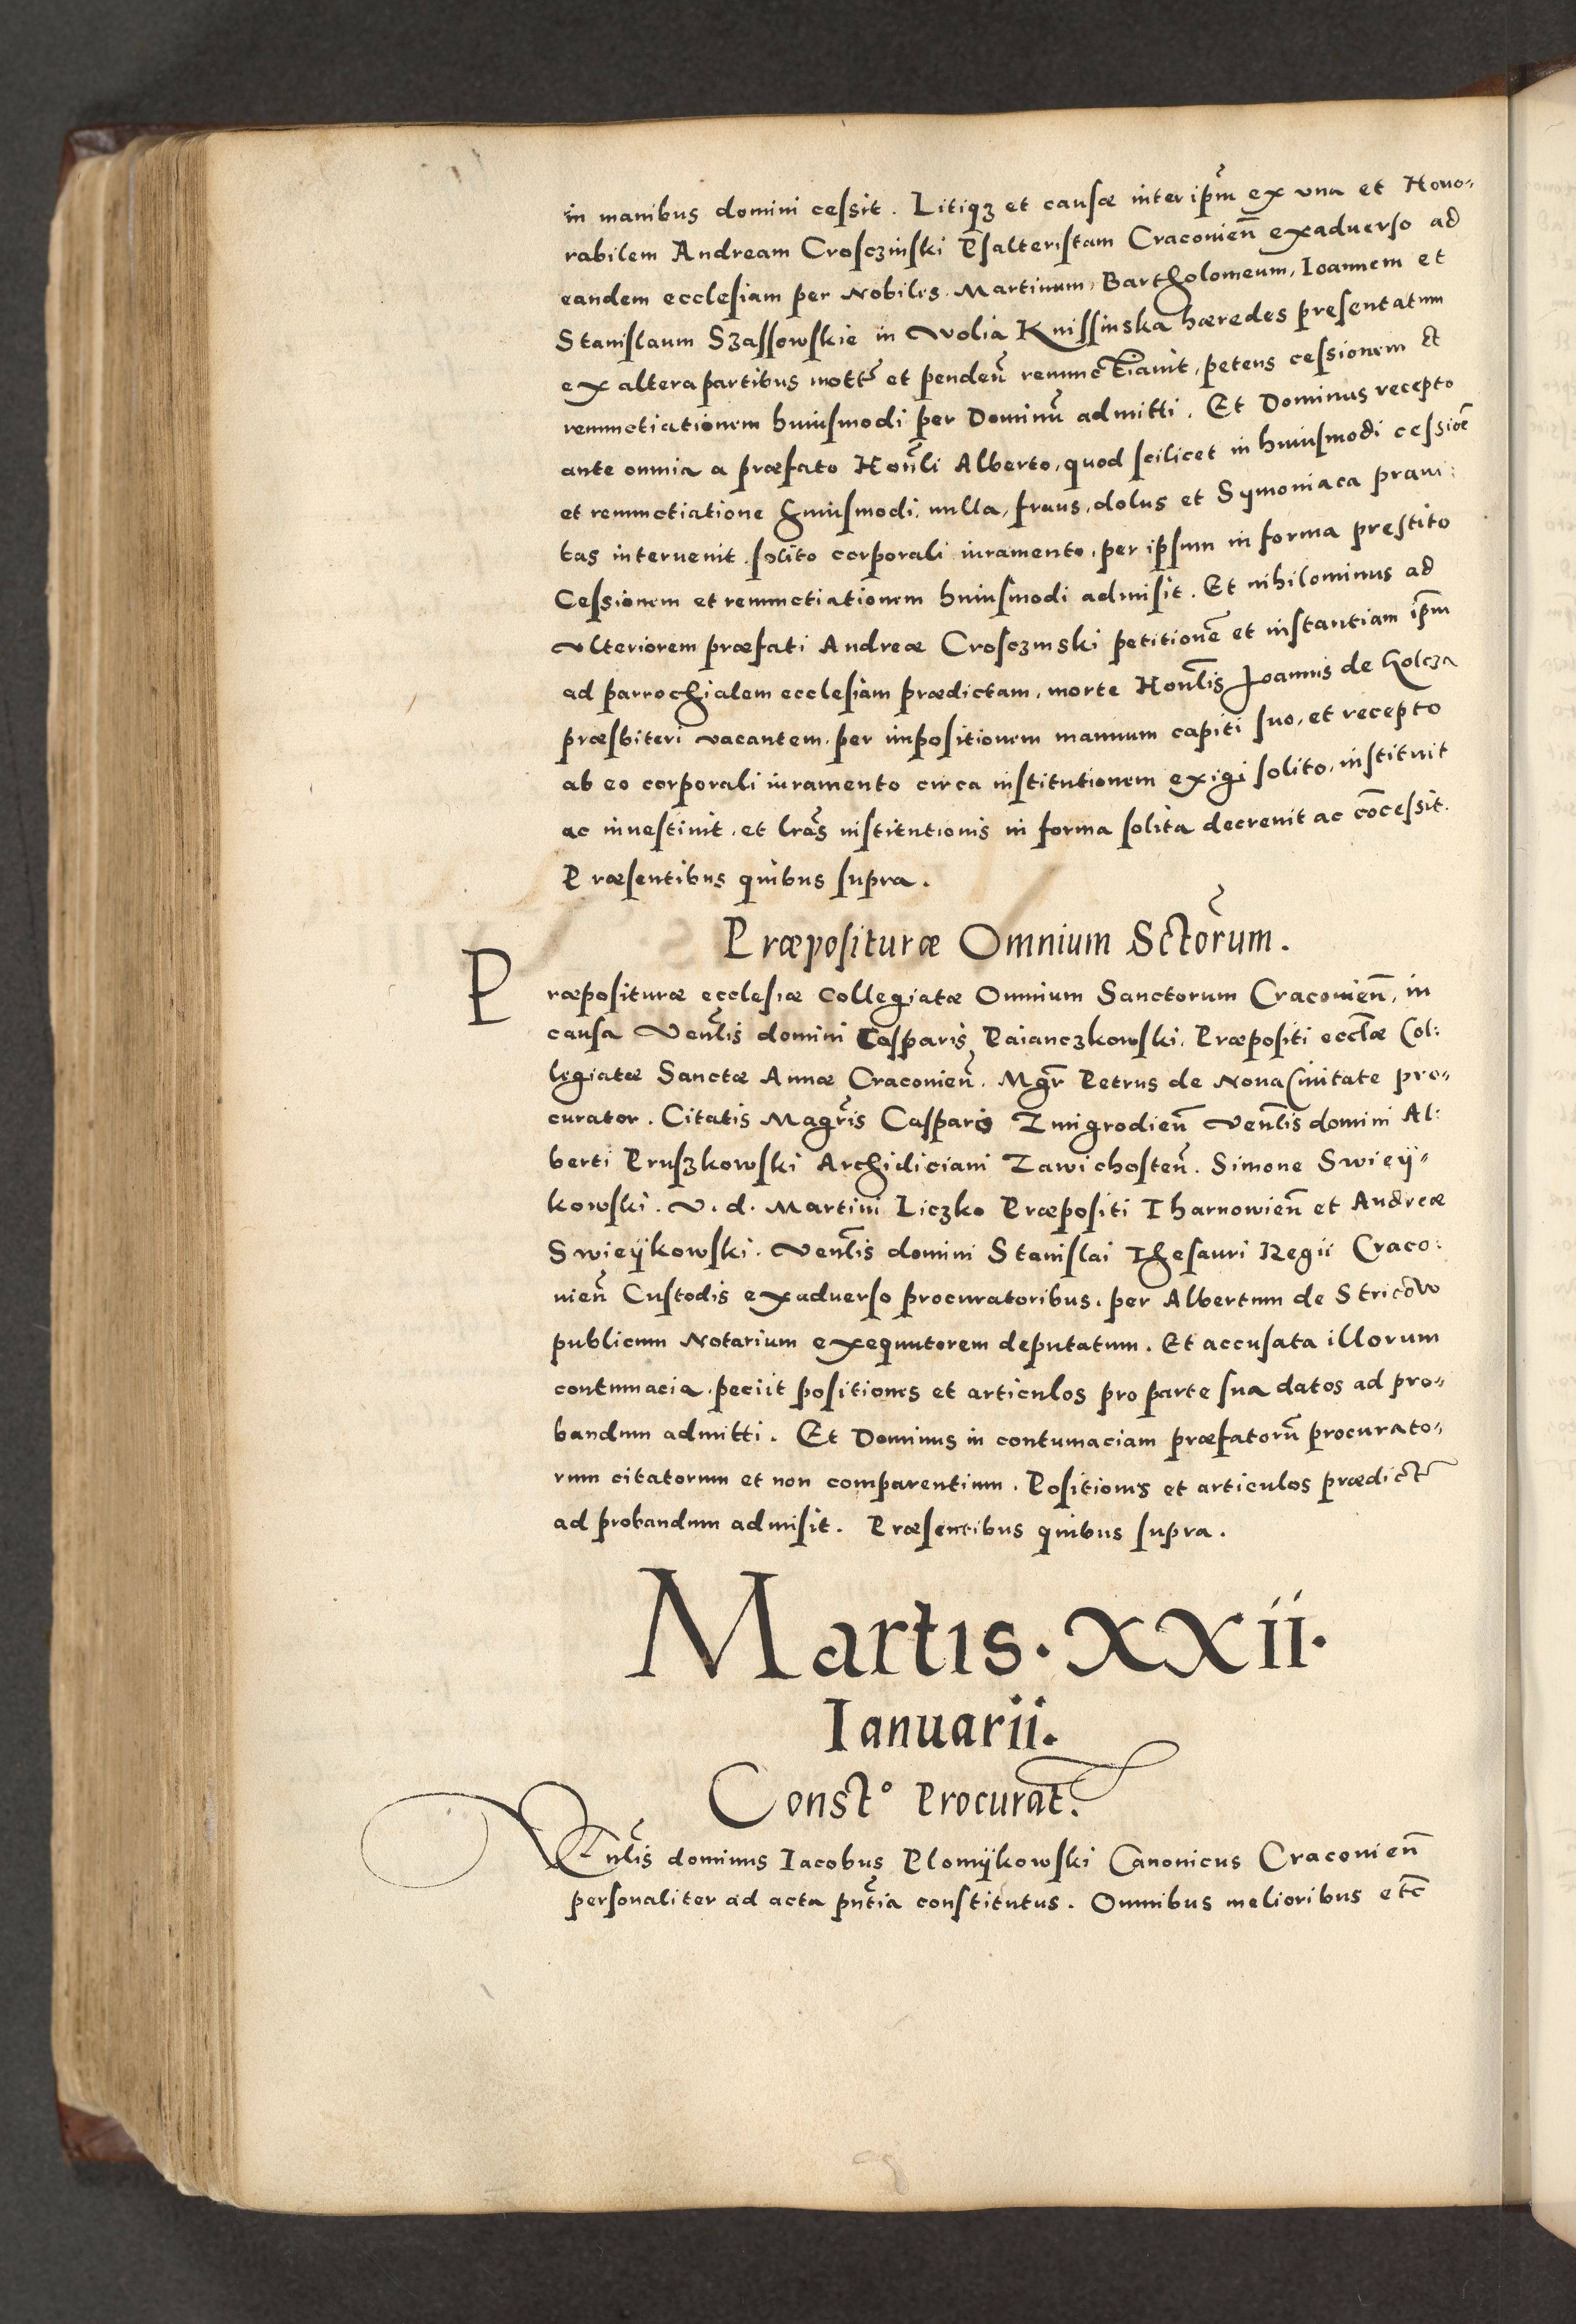 in manibus domini cessit. Litiqz et causæ inter ip̃m ex vna et Hono-
rabilem Andream Crosczinski Psalteristam Craconien̄ exaduerso ad
eandem ecclesiam per Nobiles. Martinum, Bartholomeum, Ioannem et
Stanislaum Szassowskie in Wolia Knissinska hæredes presentatum
ex altera partibus mott̃ et penden̄ renunctiauit, petens cessionem et
renunctiationem huiusmodi per Dominū admitti. Et Dominus recepto
ante omnia a præfato Hon̄li Alberto, quod scilicet in huiusmodi cessiōe
et renunctiatione huiusmodi, nulla, fraus, dolus et Symoniaca praui:
tas interuenit. solito corporali iuramento, per ipsum in forma prestito
Cessionem et renunctiationem huiusmodi admisit. Et nihilominus ad
vlteriorem præfati Andreæ Crosczinski petitionē et instantiam ip̄m
ad parrochialem ecclesiam prædictam, morte Hon̄lis Joannis de Golcza
præsbiteri vacantem, per impositionem manuum capiti suo, et recepto
ab eo corporali iuramento circa institutionem exigi solito, instituit
ac inuestiuit, et lr̄as institutionis in forma solita decreuit ac cōcessit.
Præsentibus quibus supra.
Præpositurae Omnium Sctōrum.
Præpositurae ecclesiæ Collegiatæ Omnium Sanctorum Craconien̄, in
causa Ven̄lis domini Casparis Paianczkowski. Præpositi eccl̄æ Col:
legiatæ Sanctæ Annæ Craconien̄. Mgr̄ Petrus de Noua Ciuitate pro-
curator. Citatis Magr̄is Casparo Zmigrodien̄ Ven̄lis domini Al:
berti Pruszkowski Archidiciani Zawichosten̄. Simone Swieÿ-
kowski. V. d. Martini Liczko Præpositi Tharnowien̄ et Andreæ
Swieÿkowski. Ven̄lis domini Stanislai Thesauri Regii Craco:
nien̄ Custodis exaduerso procuratoribus, per Albertum de Stricow
publicum Notarium exequutorem deputatum. Et accusata illorum
contumacia, peciit positiones et articulos pro parte sua datos ad pro-
bandum admitti. Et Dominus in contumaciam præfatorū procurato-
rum citatorum et non comparentium. Positiones et articulos prædict̃
ad probandum admisit. Præsentibus quibus supra.
Martis. XXii.
Ianuarii.
Const.º Procurat.
Ven̄lis dominus Iacobus Plomÿkowski Canonicus Craconien̄
personaliter ad acta pn̄tia constitutus. Omnibus melioribus etc̄